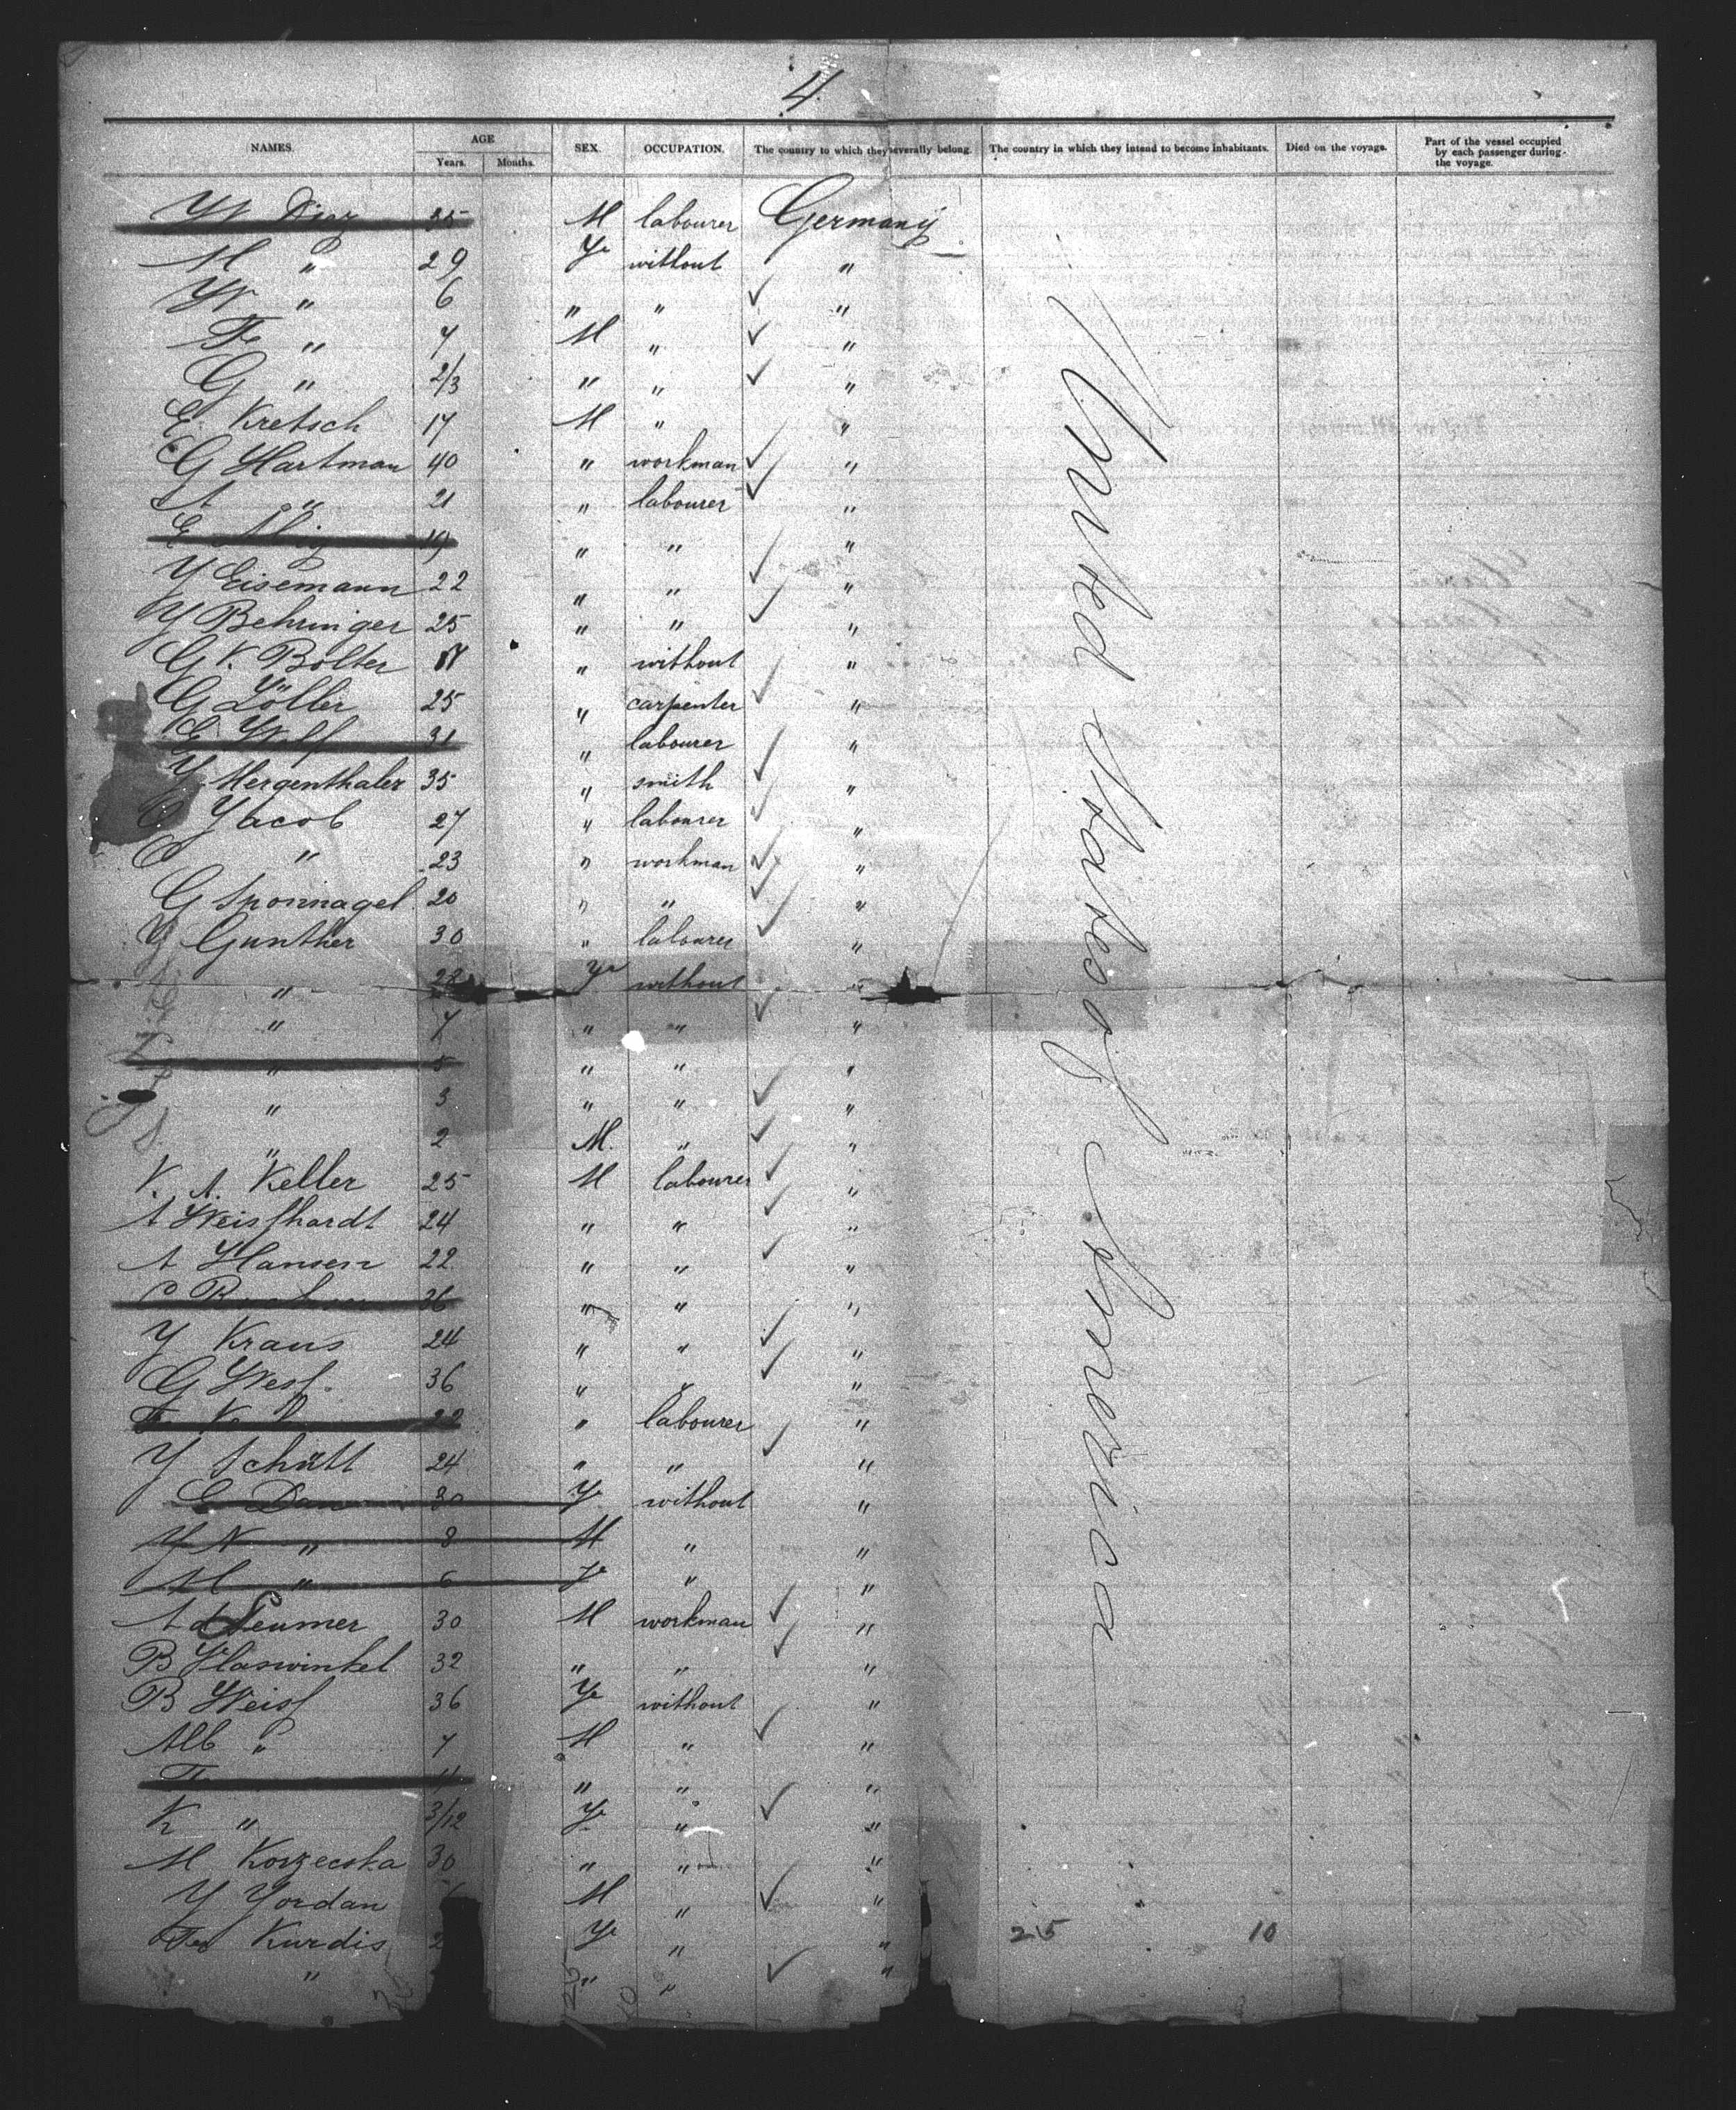 4.
NAMES. AGE Years. Months. SEX. OCCUPATION. The country to which they severally belong. The country in which they intend to become inhabitants. Died on the voyage. Part of the vessel occupied by each passenger during the voyage.
W 25 M labourer Germany
M " 29 Fe without "
W " 6 " " "
Fr " 4 M " "
G " 2/3 " " "
E. Kretsch 17 M " "
G Hartman 40 " workman "
A " 21 " labourer "
E 19 " " "
Y Eisemann 22 " " "
Y Behringer 25 " " "
G K. Bolter " without "
G Löller 25 " carpenter "
E Wolf 31 " labourer "
Y. Mergenthaler 35 " smith "
Yacob 27 " labourer "
" 23 " workman "
G Sponnagel 20 " " "
Y Gunther 30 " labourer "
" 28 Fe without "
" 7 " " "
" 5 " " "
" 3 " " "
" 2 M. " "
K. A. Keller 25 M labourer "
A Weisshardt 24 " " "
A Hansen 22 " " "
36 " " "
Y Kraus 24 " " "
G Wess. 36 " " "
22 " labourer "
Y Schütt 24 " " "
E Dan 30 Fe without "
Y N " 8 M " "
M " 6 Fe " "
A d Neumer 30 M workman "
B Haswinkel 32 " " "
B Weiss 36 Fe without "
Alb " 7 M " "
Fr " " "
K " 3/12 Fe " "
M Korzecska 30 " " "
Y Yordan M " "
Fr Kurdis 2 Fe " "
" " " "
United States of America
25 10